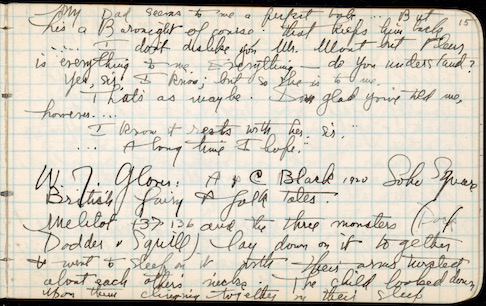 Dad seems to me a perfect But
15
he's a Baronight of course. that keeps him back
.... I don't dislike you Mr. Mont but Fleur
is everything to me Everything — do you understand?
Yes, sir I know; but so she is to me.
That's as maybe. I'm glad you've told me,
however....
I know it rests with her sir."
A long time I hope."
W. J. Glover: A & C Black 1920 Soho Square
British Fairy & Folk Tales.
Melilot 137 136 and the three monsters (
Dodder & Squill) lay down on it together
& went to sleep on it with their arms twisted
about each others necks. The child looked down
upon them clinging together in their sleep